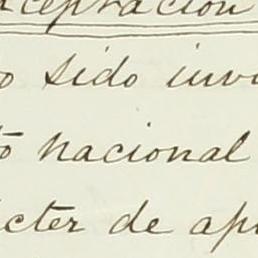 aceptación
o sido invi
to nacional
ácter de apr